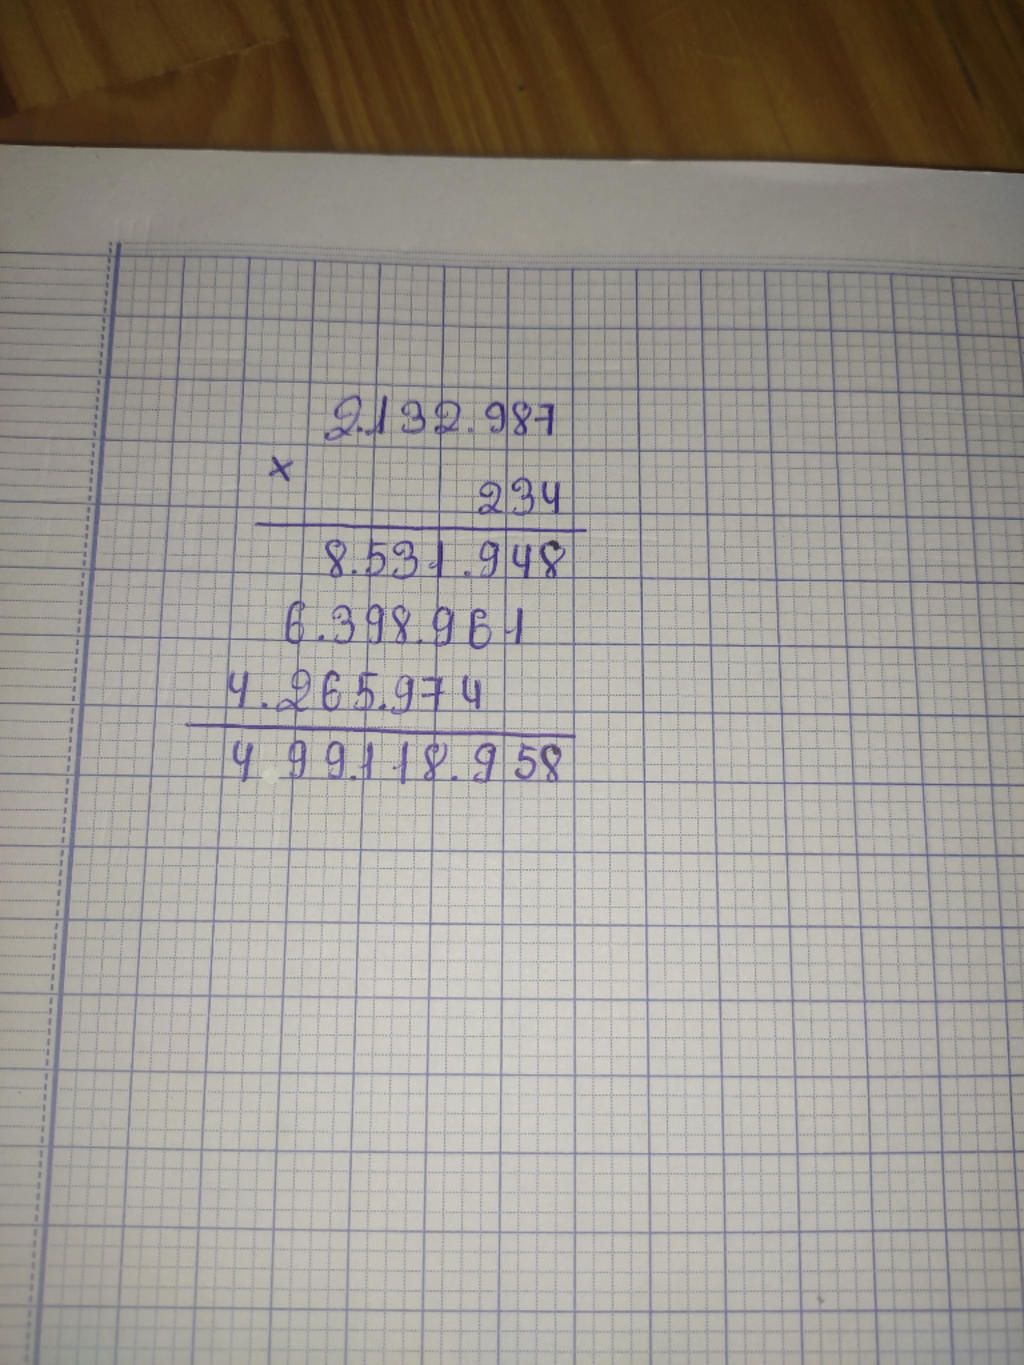 2.132.987
x
234
8.531.948
6.398.961
4.265.974
499.118.958